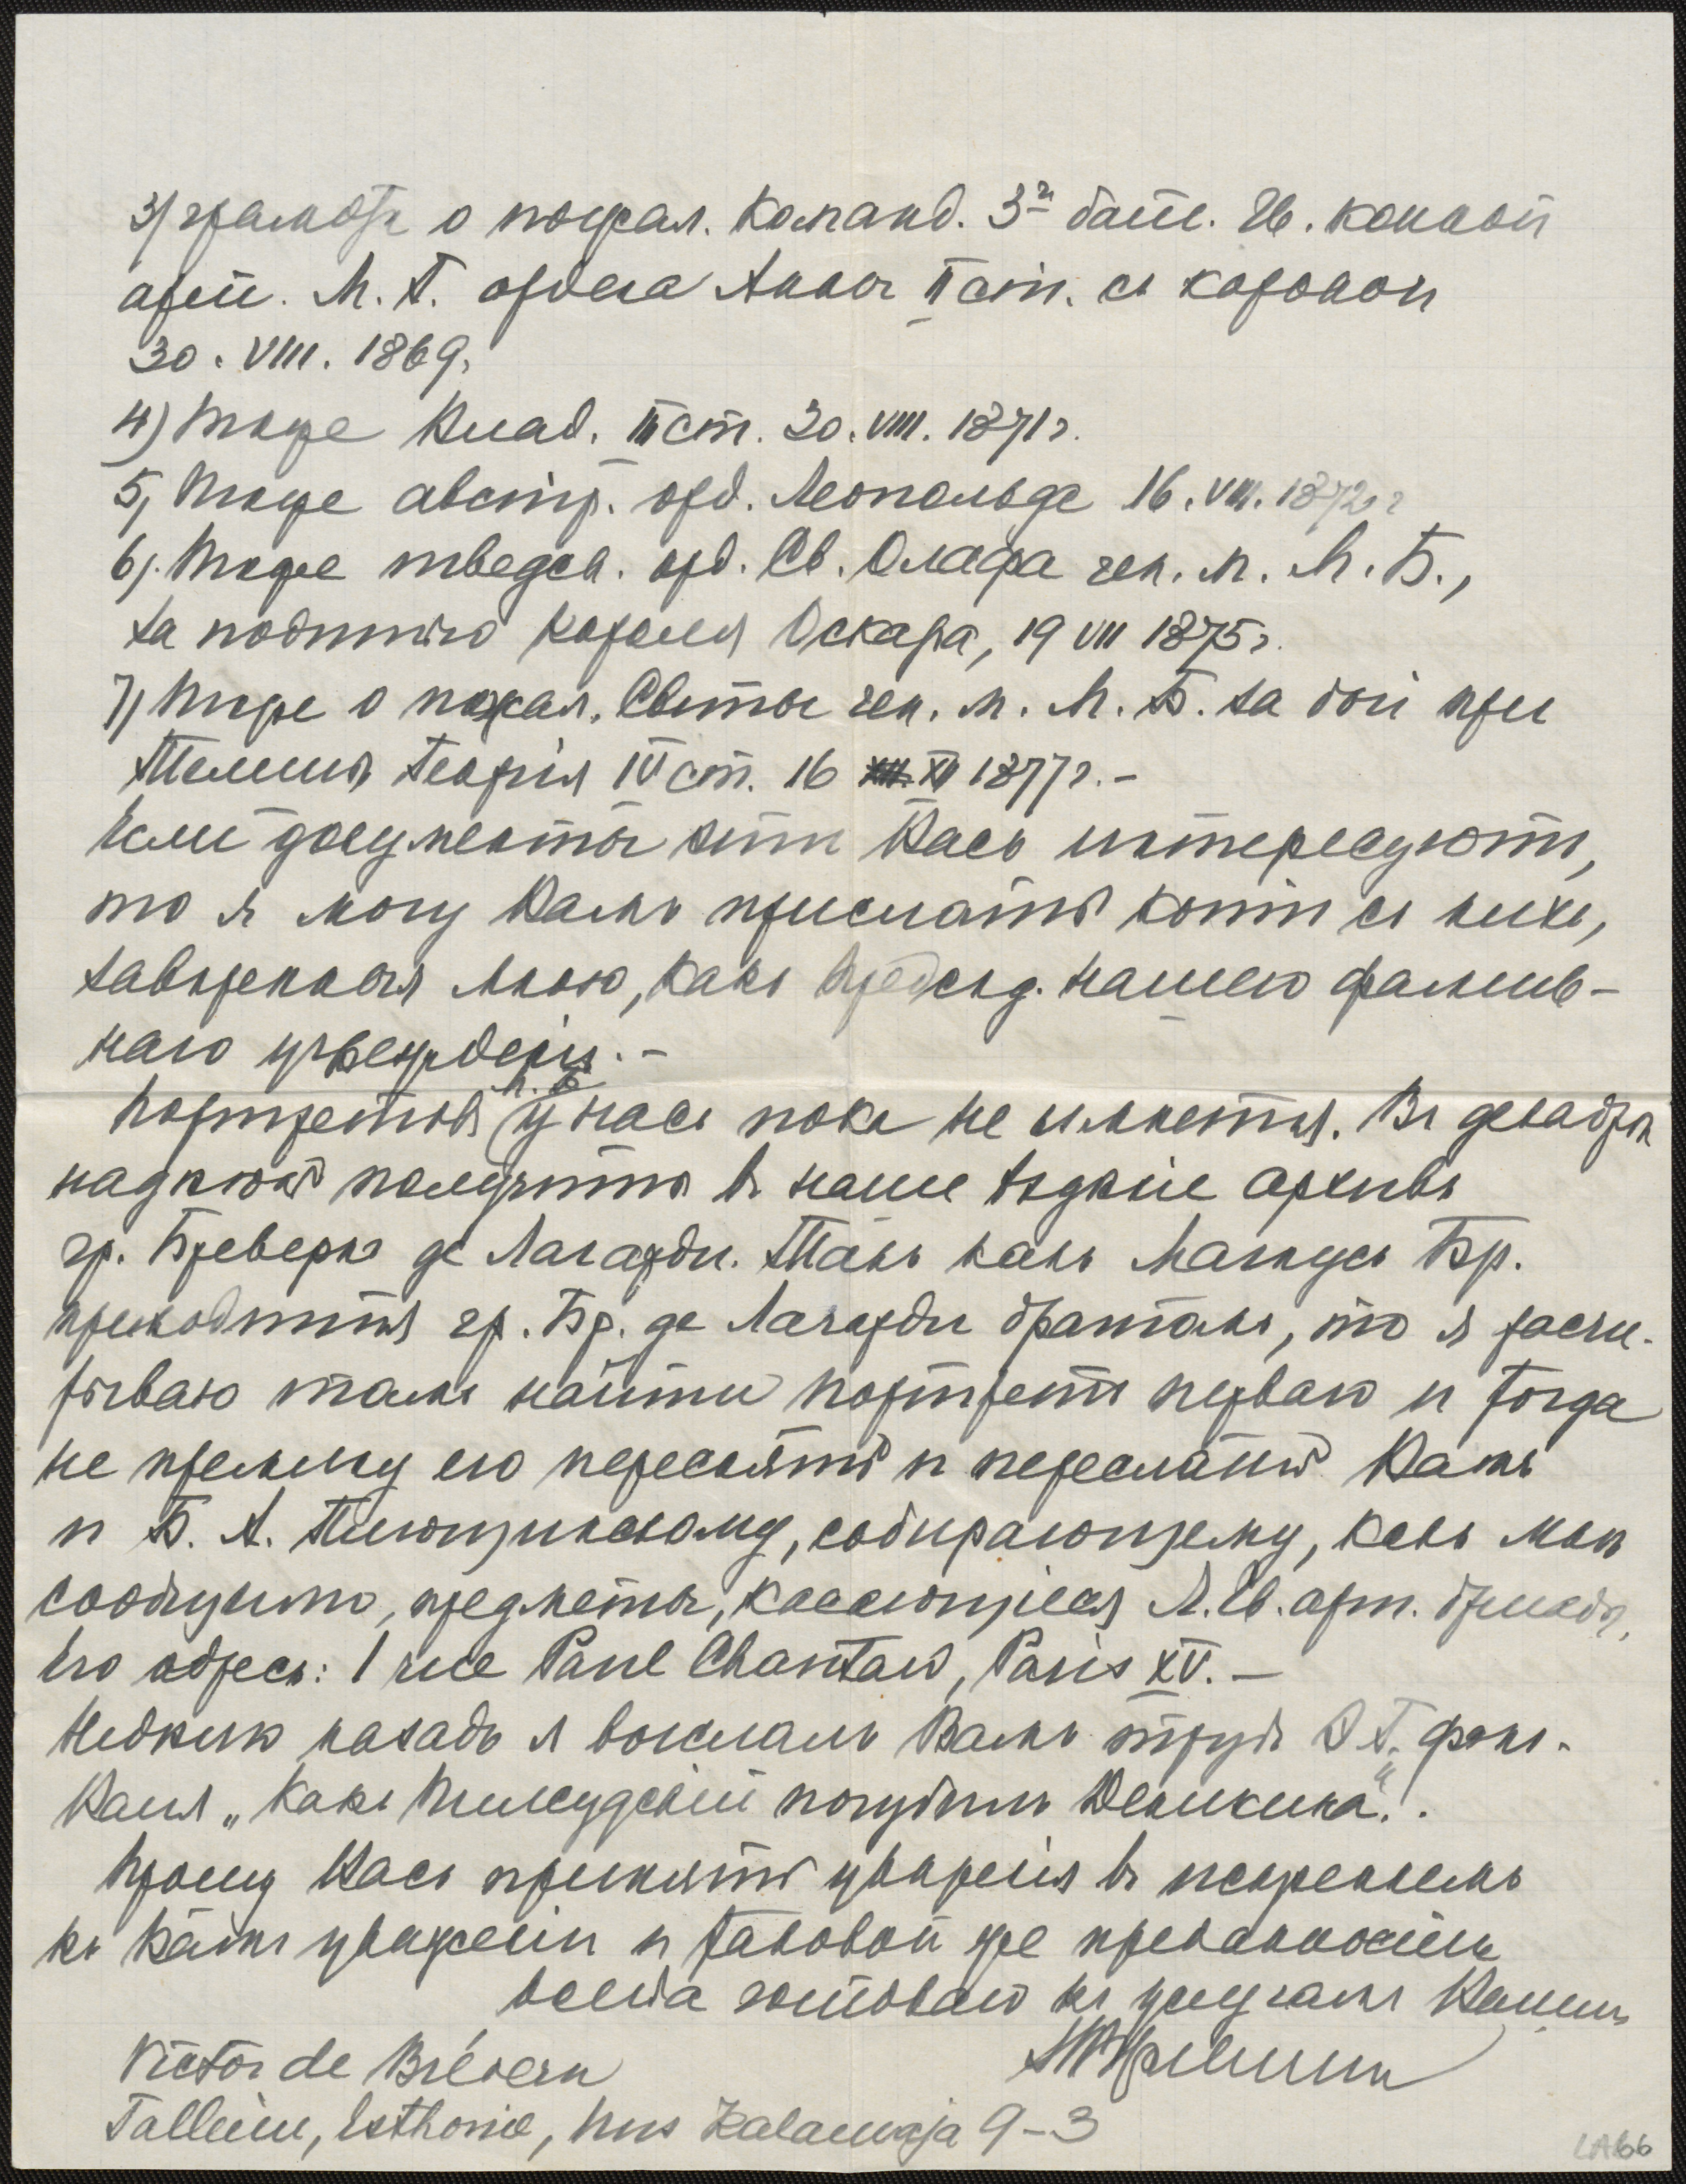 3) грамота о пожал. команд. 3й бат. Гв. конной
арт. М. Б. ордена Анны II ст. съ короной
30. VIII. 1869.
4) Тоже Влад. III ст. 30. VIII. 1871 г.
5) Тоже австр. орд. Леопольда 16. VIII. 1872 г
6). Тоже шведск. орд. Св. Олафа ген. м. М. Б.,
за подписью короля Оскара, 19 VII 1875 г.
7) Тоже о пожал. Свиты ген. м. М. Б. за бой при
Телишѣ Георгія IV ст. 16 XI 1877 г. –
Если документы эти Васъ интересуютъ,
то я могу Вамъ прислать копіи съ нихъ,
завѣренныя мною, какъ предсѣд. нашего фамиль-
наго учрежденія. –
Портретовъ М. Б. у насъ пока не имѣется. Въ декабрѣ
надѣюсь получить въ наше вѣдѣніе архивъ
гр. Бреверна де Лагарди. Такъ какъ Магнусъ Бр.
приходится гр. Бр. де Лагарди братомъ, то я расчи-
тываю тамъ найти портретъ перваго и тогда
не премину его переснять и переслать Вамъ
и Б. А. собирающему, какъ мнѣ
сообщили, предметы, касающіеся Л. Гв. арт. бригады,
Его адресъ: 1 rue Paul Paris XV. –
Недѣлю назадъ я выслалъ Вамъ трудъ фонъ-
Валя „Какъ Пилсудскій погубилъ Деникина".
Прошу Васъ принять увѣренія въ искреннемъ
къ Вамъ уваженіи и таковой же преданности
всегда готоваго къ услугамъ Вашимъ
Victor de Brévern
Tallinn, Esthonie, Uus Kalamaja 9-3
LA66